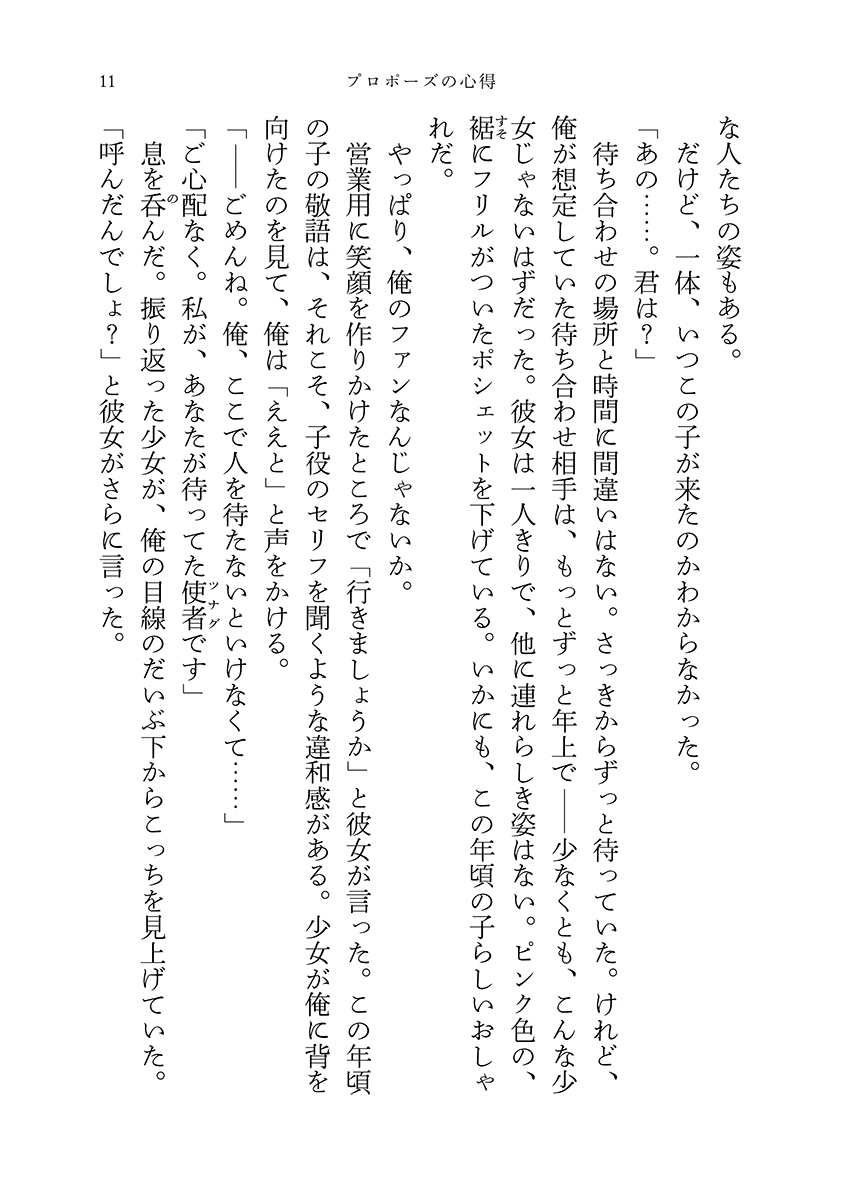 11
プロポーズの心得
な人たちの姿もある。
だけど、一体、いつこの子が来たのかわからなかった。
「あの……。君は？」
待ち合わせの場所と時間に間違いはない。さっきからずっと待っていた。けれど、
俺が想定していた待ち合わせ相手は、もっとずっと年上で――少なくとも、こんな少
女じゃないはずだった。彼女は一人きりで、他に連れらしき姿はない。ピンク色の、
裾にフリルがついたポシェットを下げている。いかにも、この年頃の子らしいおしゃ
すそ
れだ。
やっぱり、俺のファンなんじゃないか。
営業用に笑顔を作りかけたところで「行きましょうか」と彼女が言った。この年頃
の子の敬語は、それこそ、子役のセリフを聞くような違和感がある。少女が俺に背を
向けたのを見て、俺は「ええと」と声をかける。
「――ごめんね。俺、ここで人を待たないといけなくて……」
「ご心配なく。私が、あなたが待ってた使者です」
ツナグ
息を呑んだ。振り返った少女が、俺の目線のだいぶ下からこっちを見上げていた。
の
「呼んだんでしょ？」と彼女がさらに言った。